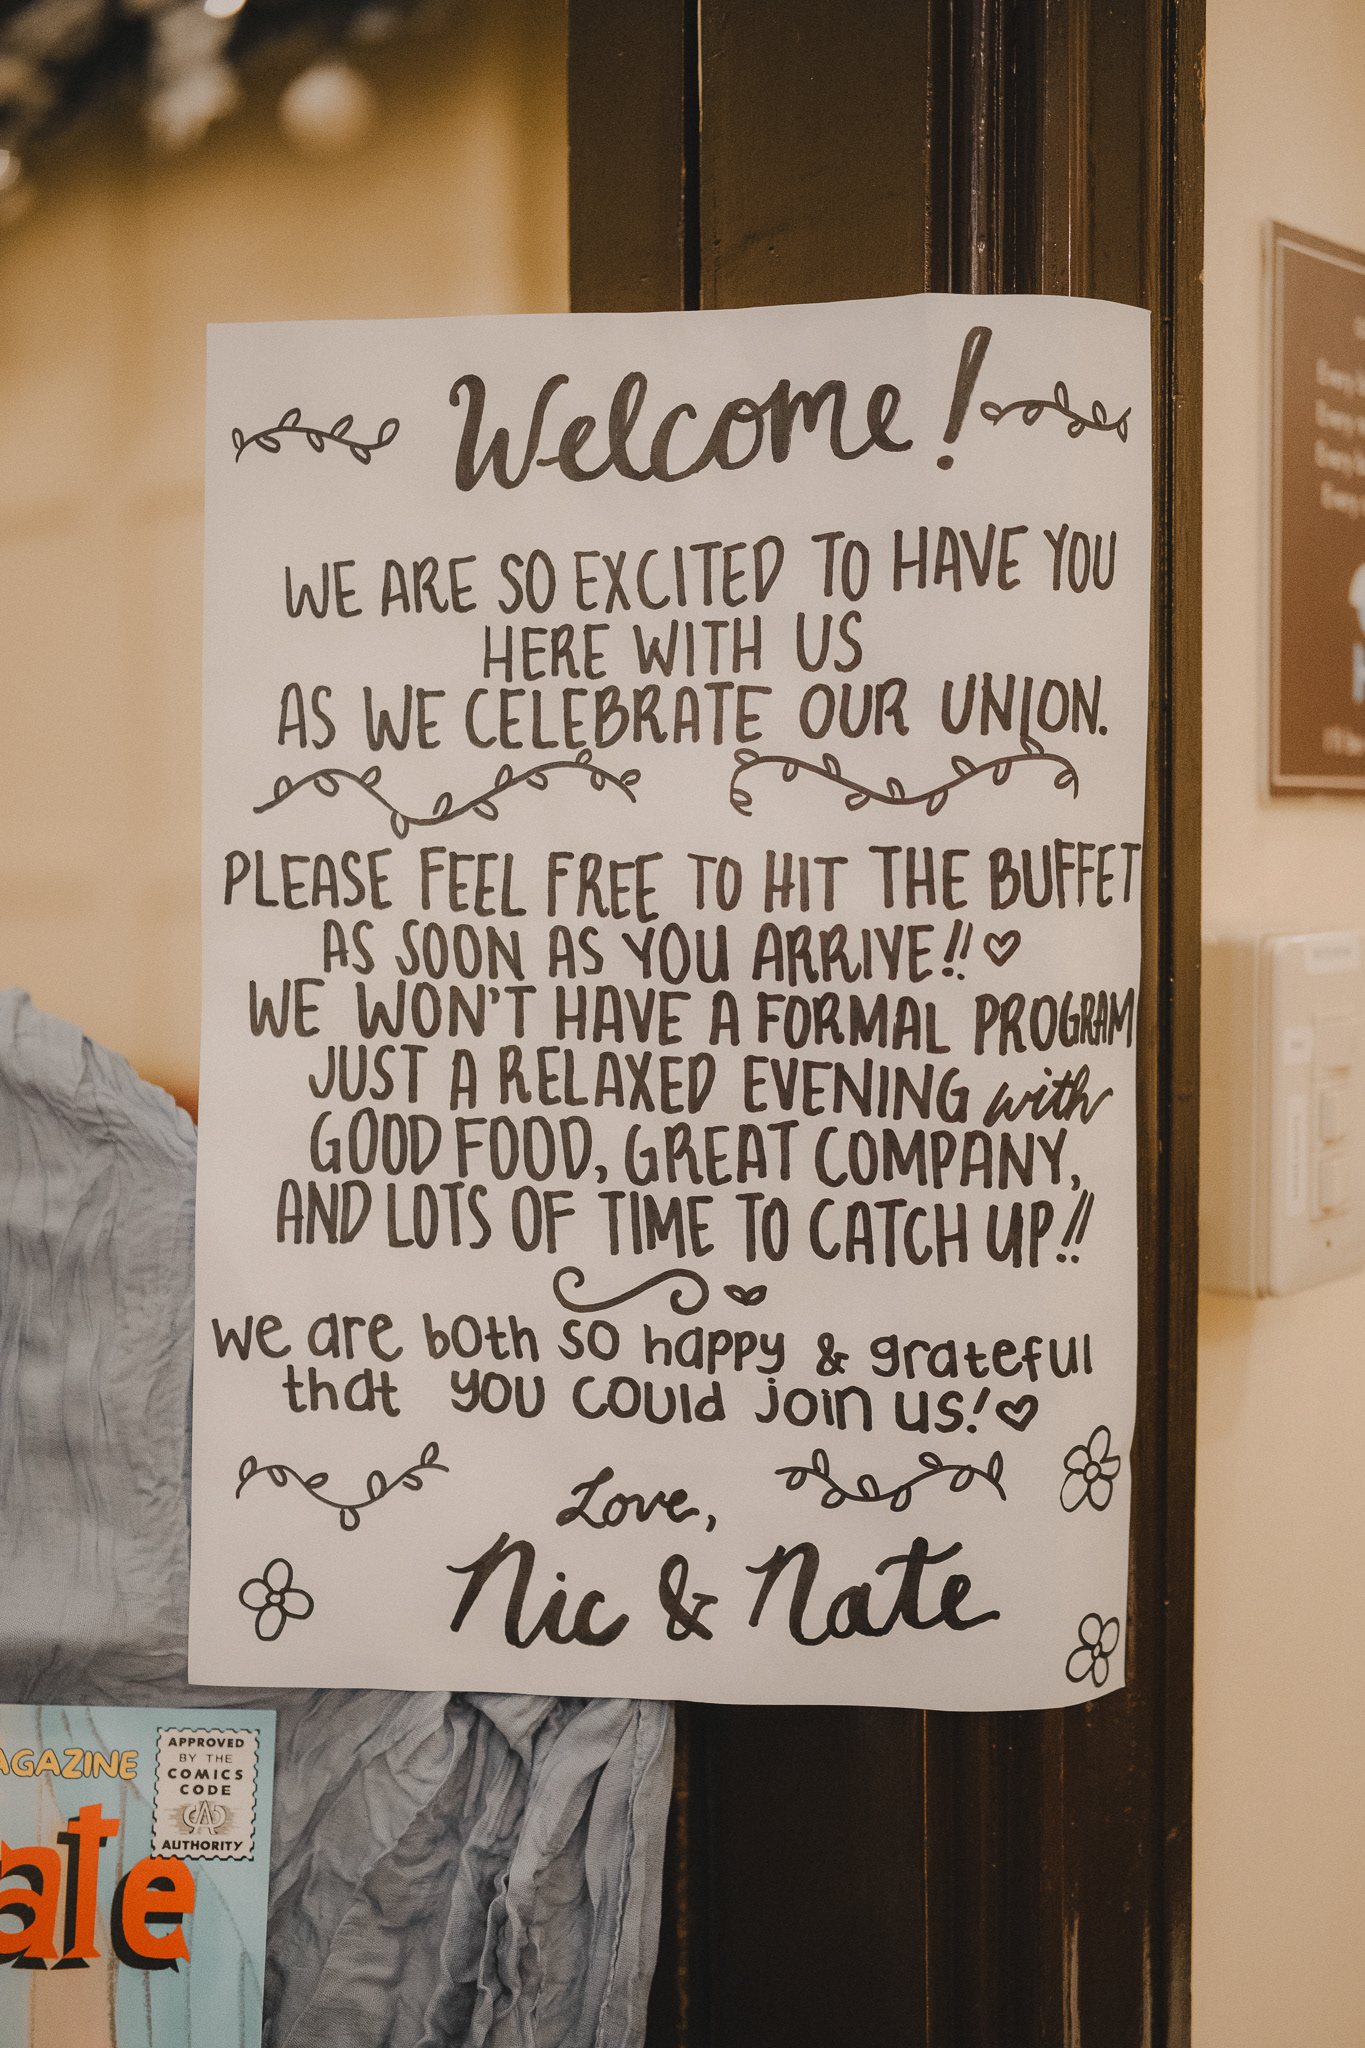 Welcome!
WE ARE SO EXCITED TO HAVE YOU
HERE WITH US
AS WE CELEBRATE OUR UNION.
PLEASE FEEL FREE TO HIT THE BUFFET
AS SOON AS YOU ARRIVE!!
WE WON'T HAVE A FORMAL PROGRAM
JUST A RELAXED EVENING with
GOOD FOOD, GREAT COMPANY,
AND LOTS OF TIME TO CATCH UP!!
we are both so happy & grateful
that you could join us!
Love,
Nic & Nate
AGAZINE
ate
APPROVED
BY THE
COMICS
CODE
AUTHORITY